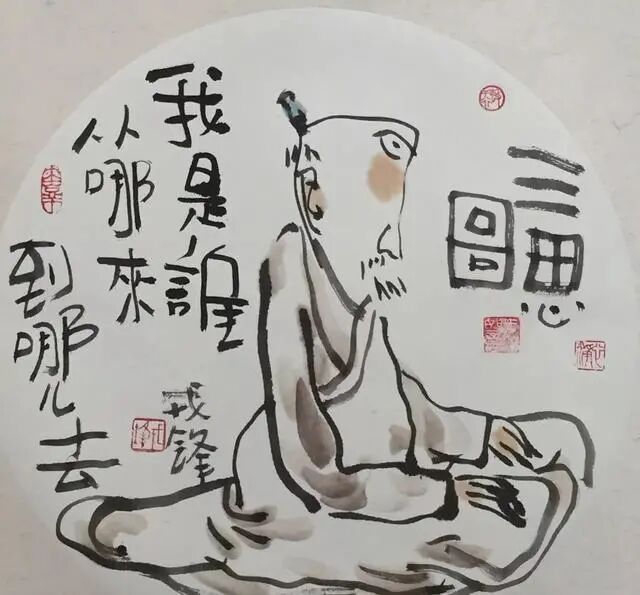 三思
圖
我是誰
从哪來
到哪儿去
戎鋒